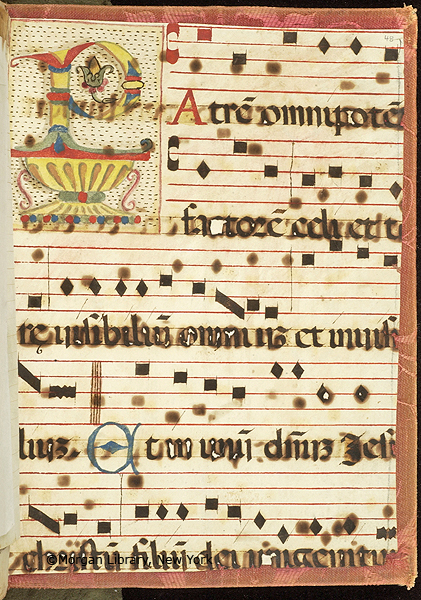 48
PAtrē omnipotē
factorē celi et t
re uisibiliū omniū et inuisi
lium. Et in unū dn̄m Jesū
christū filiū dei unigenitum
© Morgan Library, New York